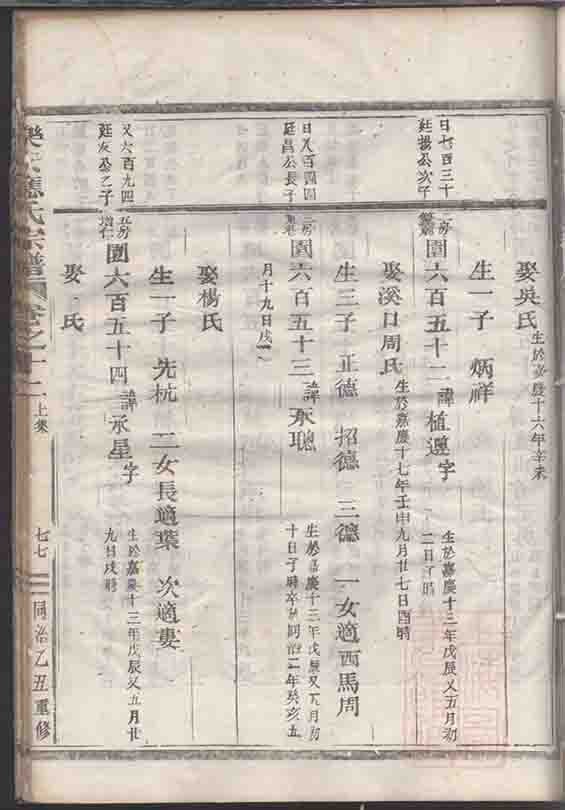 娶吳氏 生於嘉慶十六年辛未
生一子 炳祥
日七百三十
廷揚公次子
房
圍六百五十二 諱植遷字 生於嘉慶十三年戊辰又五月初
二日
娶溪口周氏 生於嘉慶十七年壬申九月廿七日酉時
生三子 正德 招德 三德 一女適西馬周
日八百四四
廷昌公長子
房
圍六百五十三 諱承聰 生於嘉慶十三年戊辰又五月初
十日子時卒於同治二年癸亥五
月十九日戌
娶楊氏
生一子 先杭 二女長適葉 次適婁
又六百九四
廷友公乙子
五房
圍六百五十四 諱承星字 生於嘉慶十三年戊辰又五月廿
九日戌時
娶 氏
應氏宗譜 卷之十二 上集 七七 同治乙丑重修